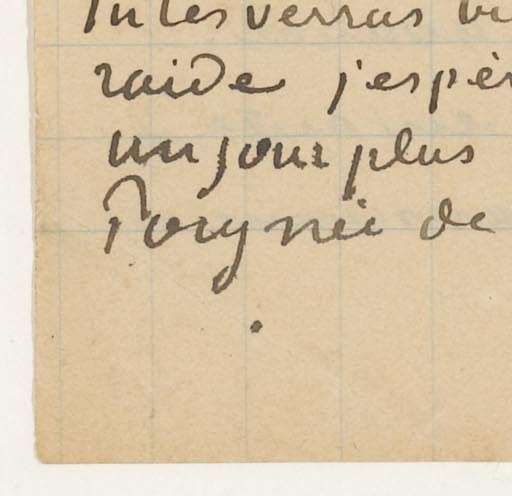 Tu les verras
raide j'espèr
un jour plus
Poignée de